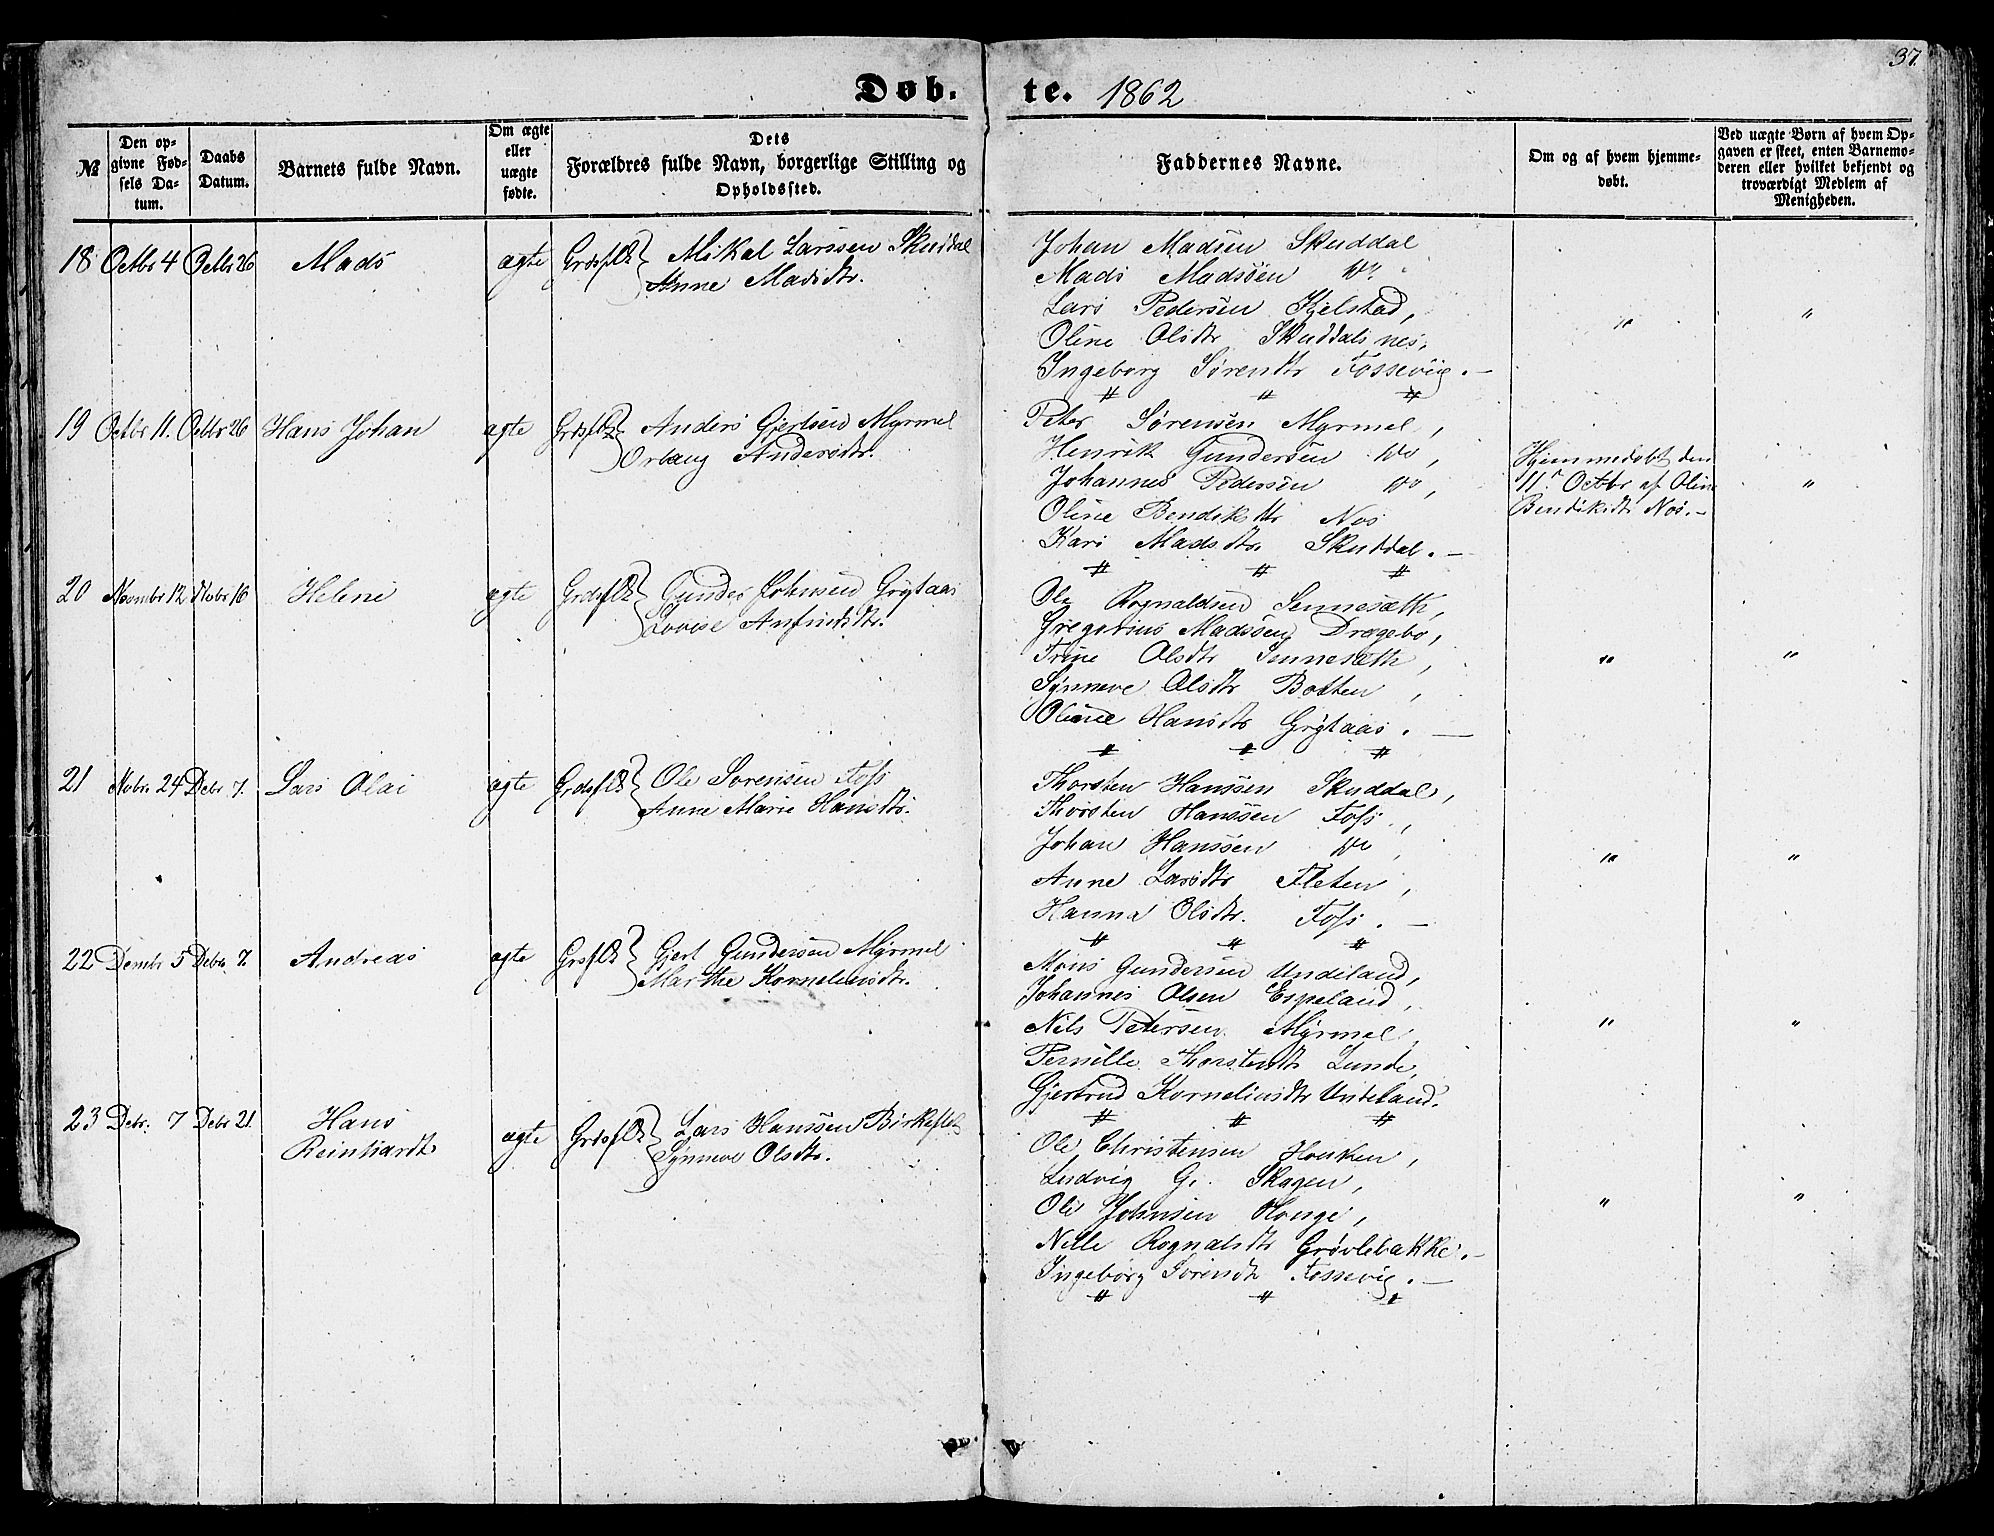 37.
Døb. te. 1862
№
Den op-
givne Fød-
sels Da-
tum.
Daabs
Datum.
Barnets fulde Navn.
Om ægte
eller
uægte
fødte.
Dets
Forældres fulde Navn, borgerlige Stilling og
Opholdssted.
Faddernes Navne.
Om og af hvem hjemme-
døbt.
Ved uægte Børn af hvem Op-
gaven er skeet, enten Barnemo-
deren eller hvilket bekjendt og
troværdigt Medlem af
Menigheden.
18 Octbr 4 Octbr 26 Mads ægte Mikal Larssen Skuddal
Anne Madsdtr.
Johan Madsen Skuddal
Mads Madssen Do
Lars Pedersen Kjelstad,
Oline Olsdtr Skuddalsnes,
Ingeborg Sørensdtr Fossevig. —
" "
19 Octbr 11. Octbr 26 Hans Johan ægte Anders Gjertsen Myrmel
Andersdtr.
Peter Sørensen Myrmel,
Henrik Gundersen Do,
Johannes Pedersen Do,
Oline Bendiksdtr Nos
Kari Madsdtr. Skuddal. —
Hjemmedøbt den
11. Octbr af Oline
Bendiksdtr Nos. —
"
20 Novmbr 12 Nobr 16 Helene ægte Gunder Johnsen Grytaas
Lovise Anfindsdtr.
Ole Rognaldsen Sennesæth,
Gregorius Madssen Dragebø,
Trine Olsdtr Sennesæth,
Synneve Olsdtr Botten,
Oline Hansdtr Grytaas. —
" "
21 Nobr. 24 Debr 7. Lars Olai ægte Ole Sørensen Foss
Anne Marie Hansdtr.
Thorsten Hanssen Skuddal,
Thorsten Hanssen Foss,
Johan Hanssen Do,
Anne Larsdtr Fleten,
Hanna Olsdtr. Foss. —
" "
22 Dembr 5 Debr. 7. Andreas ægte Gjert Gundersen Myrmel
Marthe Korneliusdtr.
Mons Gundersen Undeland,
Johannes Olsen Espeland,
Nils Petersen Myrmel,
Pernille Thorstendtr Lunde,
Gjertrud Korneliusdtr Undeland.
" "
23 Debr. 7 Debr 21. Hans
Reinhardt ægte Lars Hanssen Birkeflet
Synneve Olsdtr.
Ole Christensen Houken,
Ludvig G. Skagen,
Ole Johnsen Houge,
Nille Rognaldsdtr Grøvlebakke. —
Ingeborg Sørensdtr Fossevig. —
" "